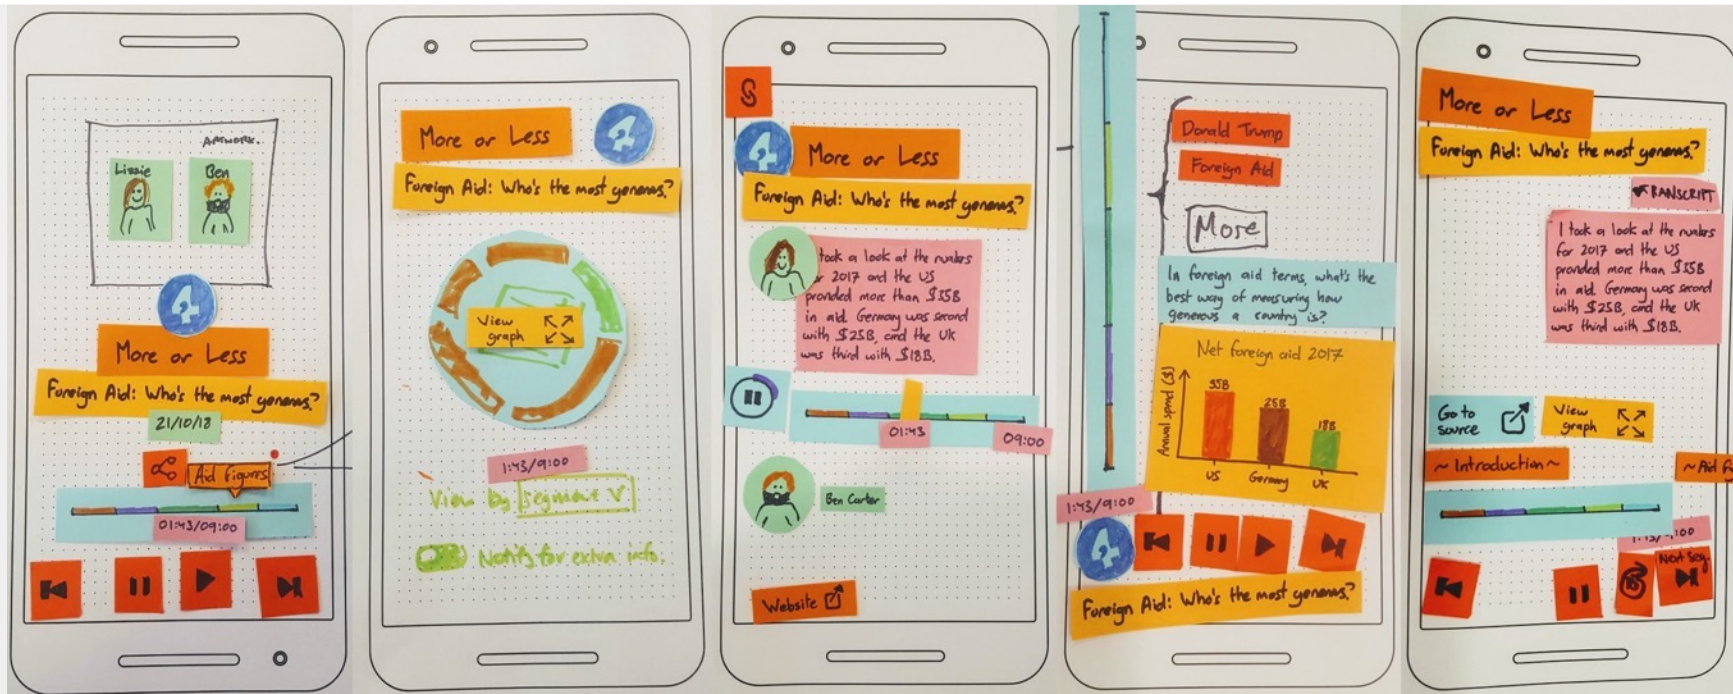 ARTWORK.
Lizzie
Ben
4
More or Less
Foreign Aid: Who's the most generous?
21/10/18
Aid Figures
01:43/09:00
More or Less
4
Foreign Aid: Who's the most generous?
View
graph
1:43/9:00
View by Segment V
Notify for extra info.
S
4
More or Less
Foreign Aid: Who's the most generous?
took a look at the numbers
2017 and the US
provided more than $35B
in aid. Germany was second
with $25B, and the UK
was third with $18B.
01:43
09:00
Ben Carter
Website
Donald Trump
Foreign Aid
More
In foreign aid terms, what's the
best way of measuring how
generous a country is?
Net foreign aid 2017
Annual spend ($)
35B
25B
18B
US
Germany
UK
1:43/9:00
4
Foreign Aid: Who's the most generous?
More or Less
Foreign Aid: Who's the most generous?
TRANSCRIPT
I took a look at the numbers
for 2017 and the US
provided more than $35B
in aid. Germany was second
with $25B, and the UK
was third with $18B.
Go to
source
View
graph
~ Introduction ~
~ Aid
Next Seg.